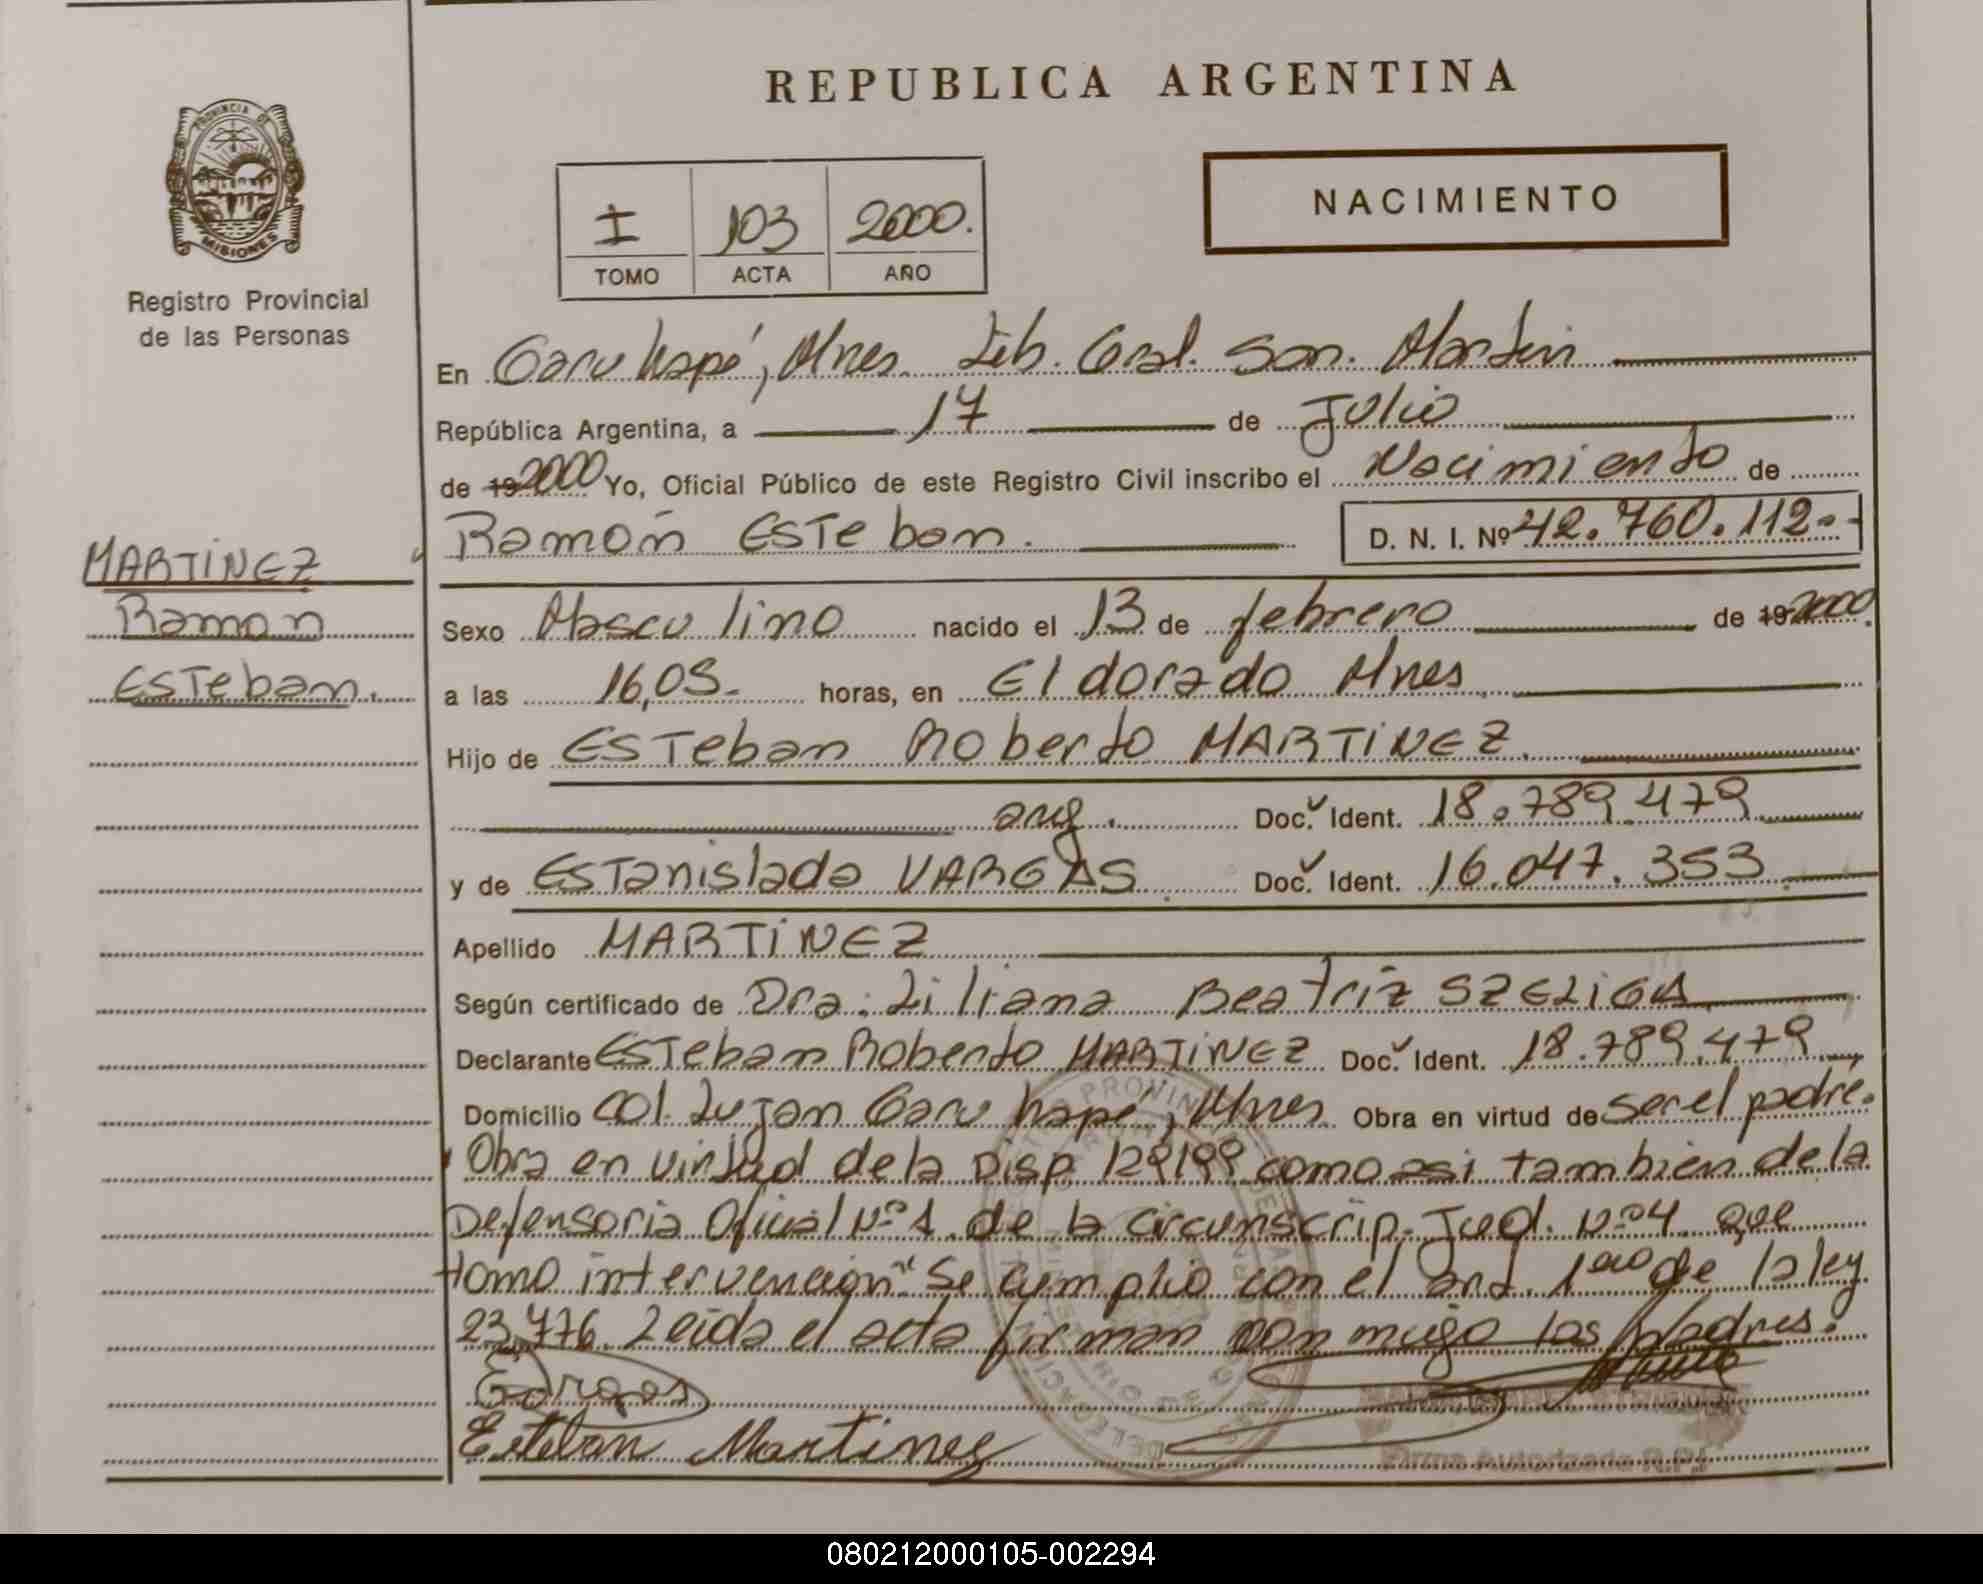 REPUBLICA ARGENTINA
PROVINCIA DE
MISIONES
Registro Provincial
de las Personas
I 103 2000.
TOMO ACTA AÑO
NACIMIENTO
En Garuhapé, Mnes. Lib. Gral. San. Martin
República Argentina, a 17 de Julio
de 19 2000 Yo, Oficial Público de este Registro Civil inscribo el Nacimiento de
Ramón Esteban. D. N. I. Nº 42.760.112.-
MARTINEZ
Ramon
Esteban.
Sexo Masculino nacido el 13 de febrero de 19 2000.
a las 16,05- horas, en Eldorado Mnes.
Hijo de Esteban Roberto MARTINEZ.
arg. Doc. Ident. 18.789.479
y de Estanislada VARGAS. Doc. Ident. 16.047.353
Apellido MARTINEZ
Según certificado de Dra: Liliana Beatriz SZELIGA
Declarante Esteban Roberto MARTINEZ Doc. Ident. 18.789.479
Domicilio Col. Lujan Garuhapé, Mnes. Obra en virtud de ser el padre.
"Obra en virtud de la Disp. 129199 como asi tambien de la
Defensoria Oficial Nº 1 de la circunscrip. Jud. Nº 4 que
tomo intervencion" Se cumplio con el art. 1ero de la ley
23.776. Leida el acta firman conmigo los padres.
Esteban Martinez
Firma Autorizada R.P.
080212000105-002294